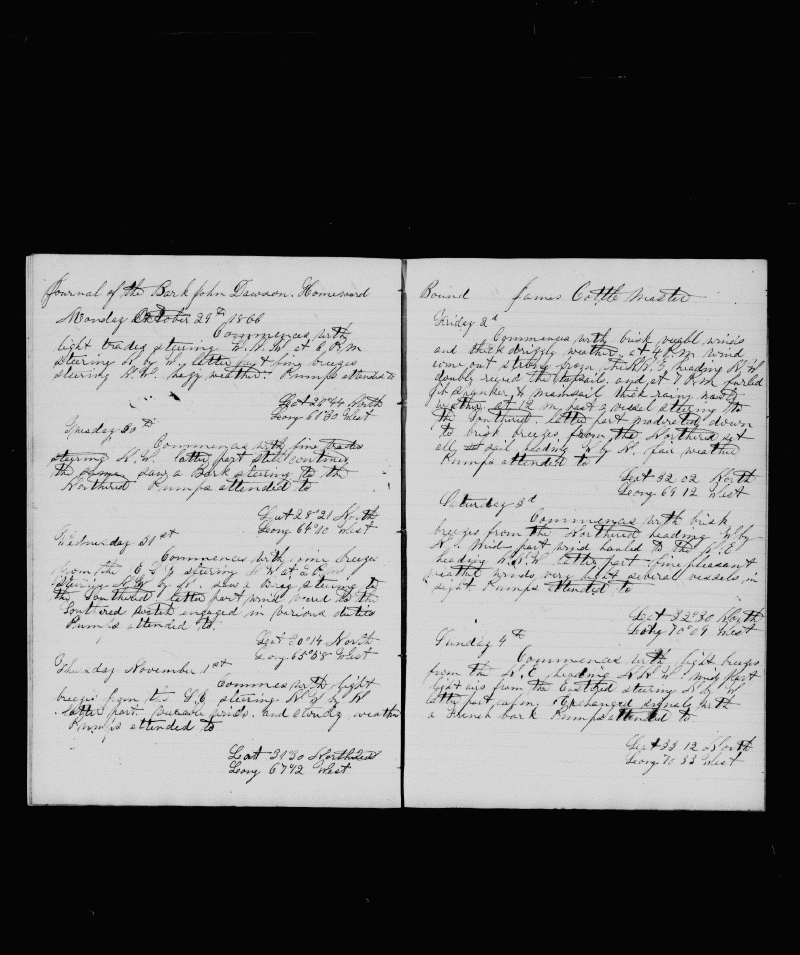 Journal of the Bark John Dawson. Homeward
Monday October 29th 1866
Commences with
light trades steering W. N. W. at 6 P.M
steering N by W, latter part fine breezes
steering N.W. hazy weather. Pumps attended to
Lat 26°44 North
Long 61°30 West
Tuesday 30th
Commences with fine trades
steering N.W. latter part still continues
the same saw a Bark steering to the
Northerd Pumps attended to
Lat 28°21 North
Long 64°10 West
Wednesday 31st
Commences with fine breezes
from the steering N W at 2 P.M
steering N.W by N. saw a Brig steering to
the Southerd latter part wind vered to the
Southerd watch engaged in various duties
Pumps attended to.
Lat 30°14 North
Long 65°58 West
Thursday November 1st
Commes with light
breezes from the S. E steering N W by N
latter part. winds. and cloudy weather
Pumps attended to
Lat 31 30 North
Long 67 42 West
Bound James Cottle Master
Friday 2d
Commences with brisk winds
and thick drizzly weather, at 4 P.M. wind
come out strong from the N.N.E heading N.W
doubly reefed the topsails. and at 7 P.M furled
jib spanker, & mainsail thick rainy nasty
weather at 12 m. past a vessel steering to
the Southerd. latter part moderated down
to brisk breezes from the Northerd set
all sail heading W by N. fair weather
Pumps attended to
Lat 32 02 North
Long 69 12 West
Saturday 3d
Commences with brisk
breezes from the Northerd heading W by
N. Mid part wind hauled to the N. E
heading N.N.W latter part fine pleasant
weather winds very light several vessels in
sight Pumps attended to
Lat 32°30 North
Long 70°09 West
Sunday 4th
Commences with light breezes
from the N. E. heading N.N.W. mid part
light airs from the Easterd steering N by W
latter part calm. Exchanged signals with
a French bark Pumps attended to
Lat 33 12 North
Long 70 33 West